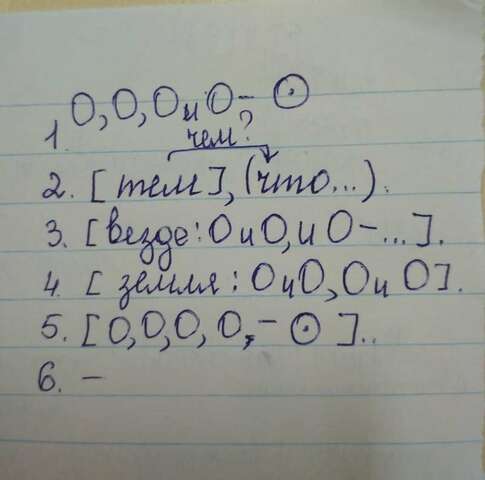 1. О, О, О и О – ⊙
чем?
2. [тем], (что...).
3. [везде: О и О, и О – ...].
4. [земля: О и О, О и О].
5. [О, О, О, О, – ⊙]..
6. –